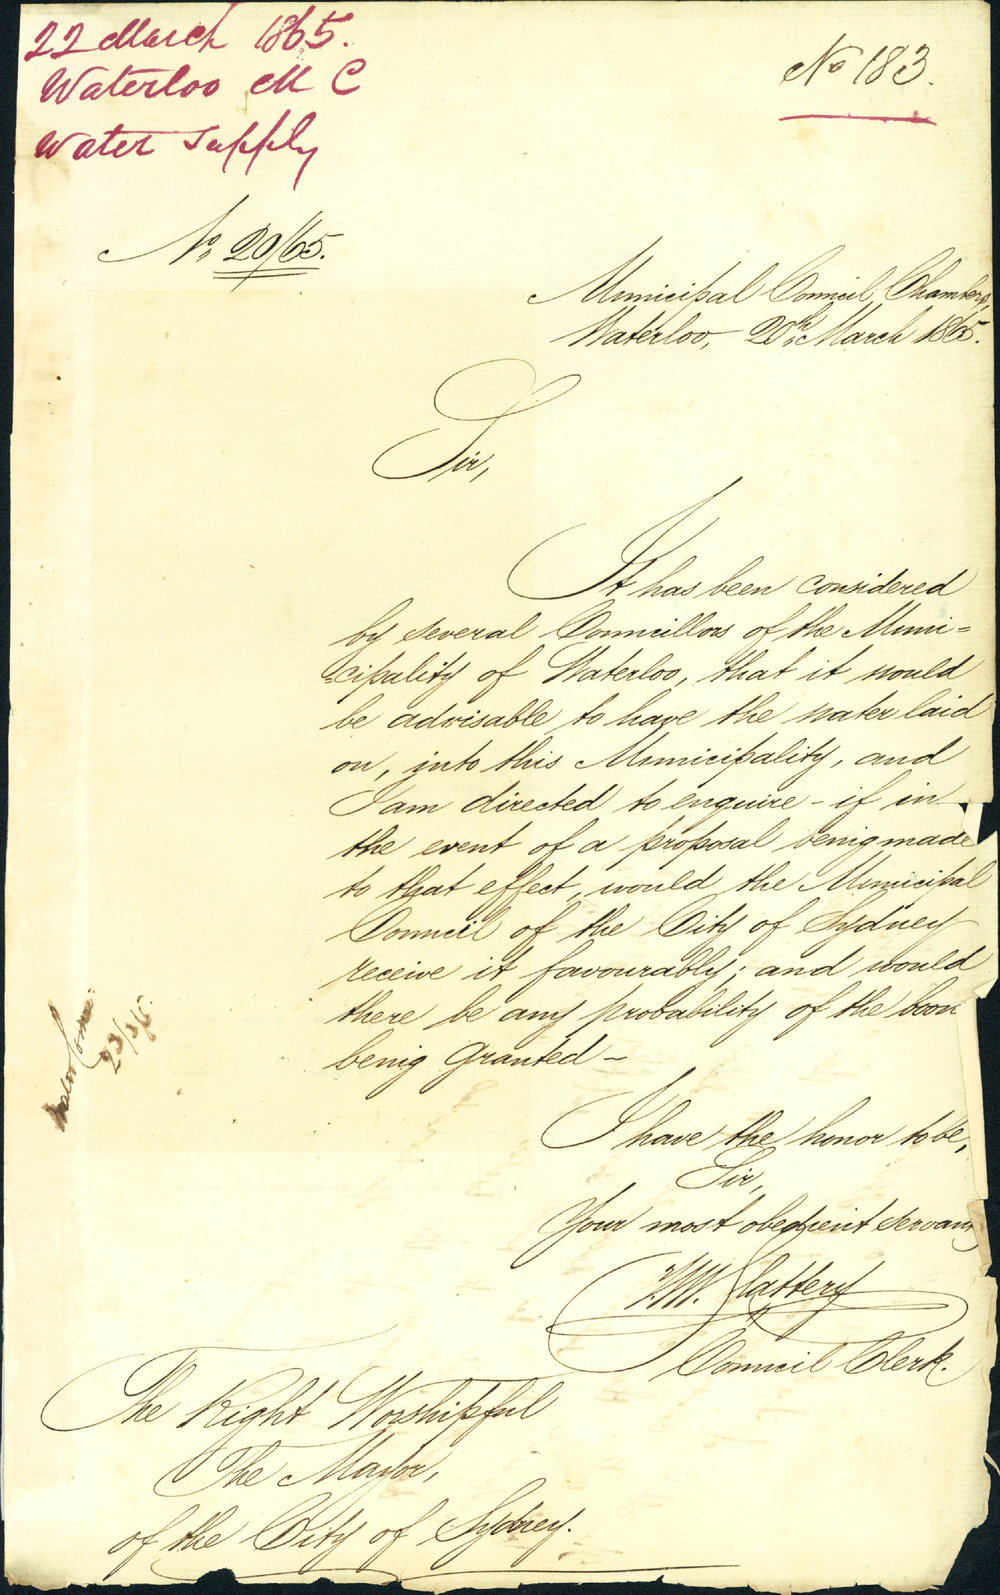 22 March 1865.
Waterloo M C
Water Supply
No 183.
No. 20/65.
Municipal Council Chambers,
Waterloo, 20th March 1865.
Sir,
It has been considered
by several Councillors of the Muni=
=cipality of Waterloo, that it would
be advisable to have the water laid
on, into this Municipality, and
I am directed to enquire - if in
the event of a proposal being made
to that effect, would the Municipal
Council of the City of Sydney
receive it favourably; and would
there be any probability of the boon
being granted -
I have the honor to be,
Sir,
Your most obedient servant
Slattery
Council Clerk.
The Right Worshipful
The Mayor,
of the City of Sydney.
Water Com.
23/3/65.